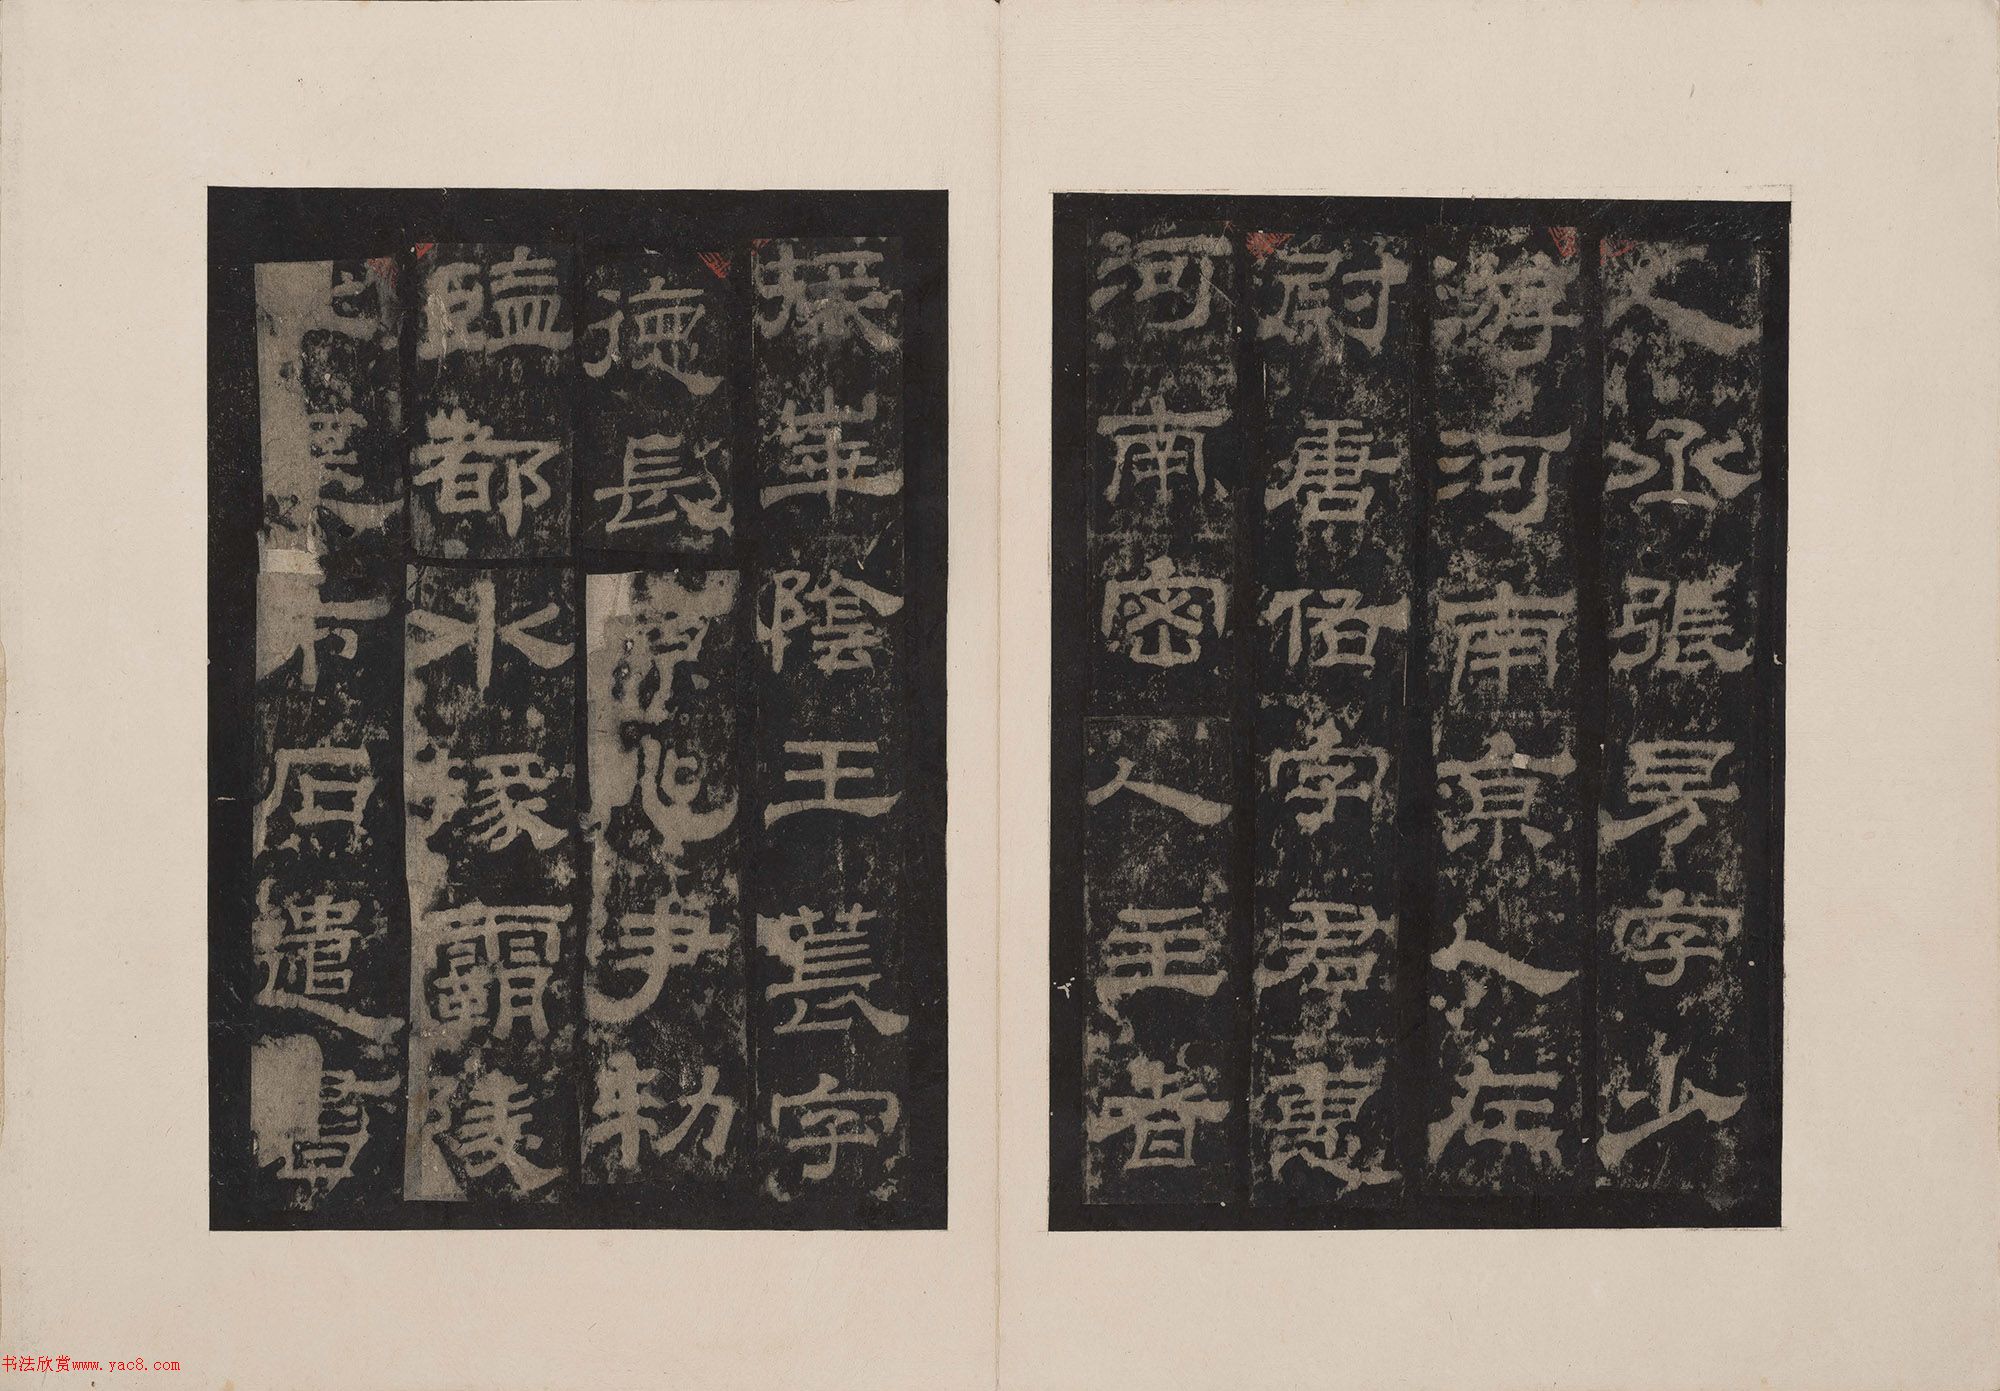 人丞張昉字少
游河南京人左
尉唐佑字君惠
河南密人主者
掾華陰王萇字
德長京兆尹勑
監都水掾霸陵
市石遣書
书法欣赏www.yac8.com